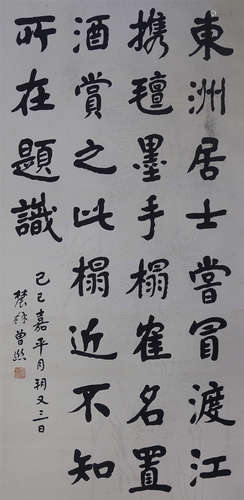 東洲居士嘗冒渡江
攜氊墨手榻崔名置
酒賞之此榻近不知
所在題識
己巳嘉平月朔又三日
農髯曾熙